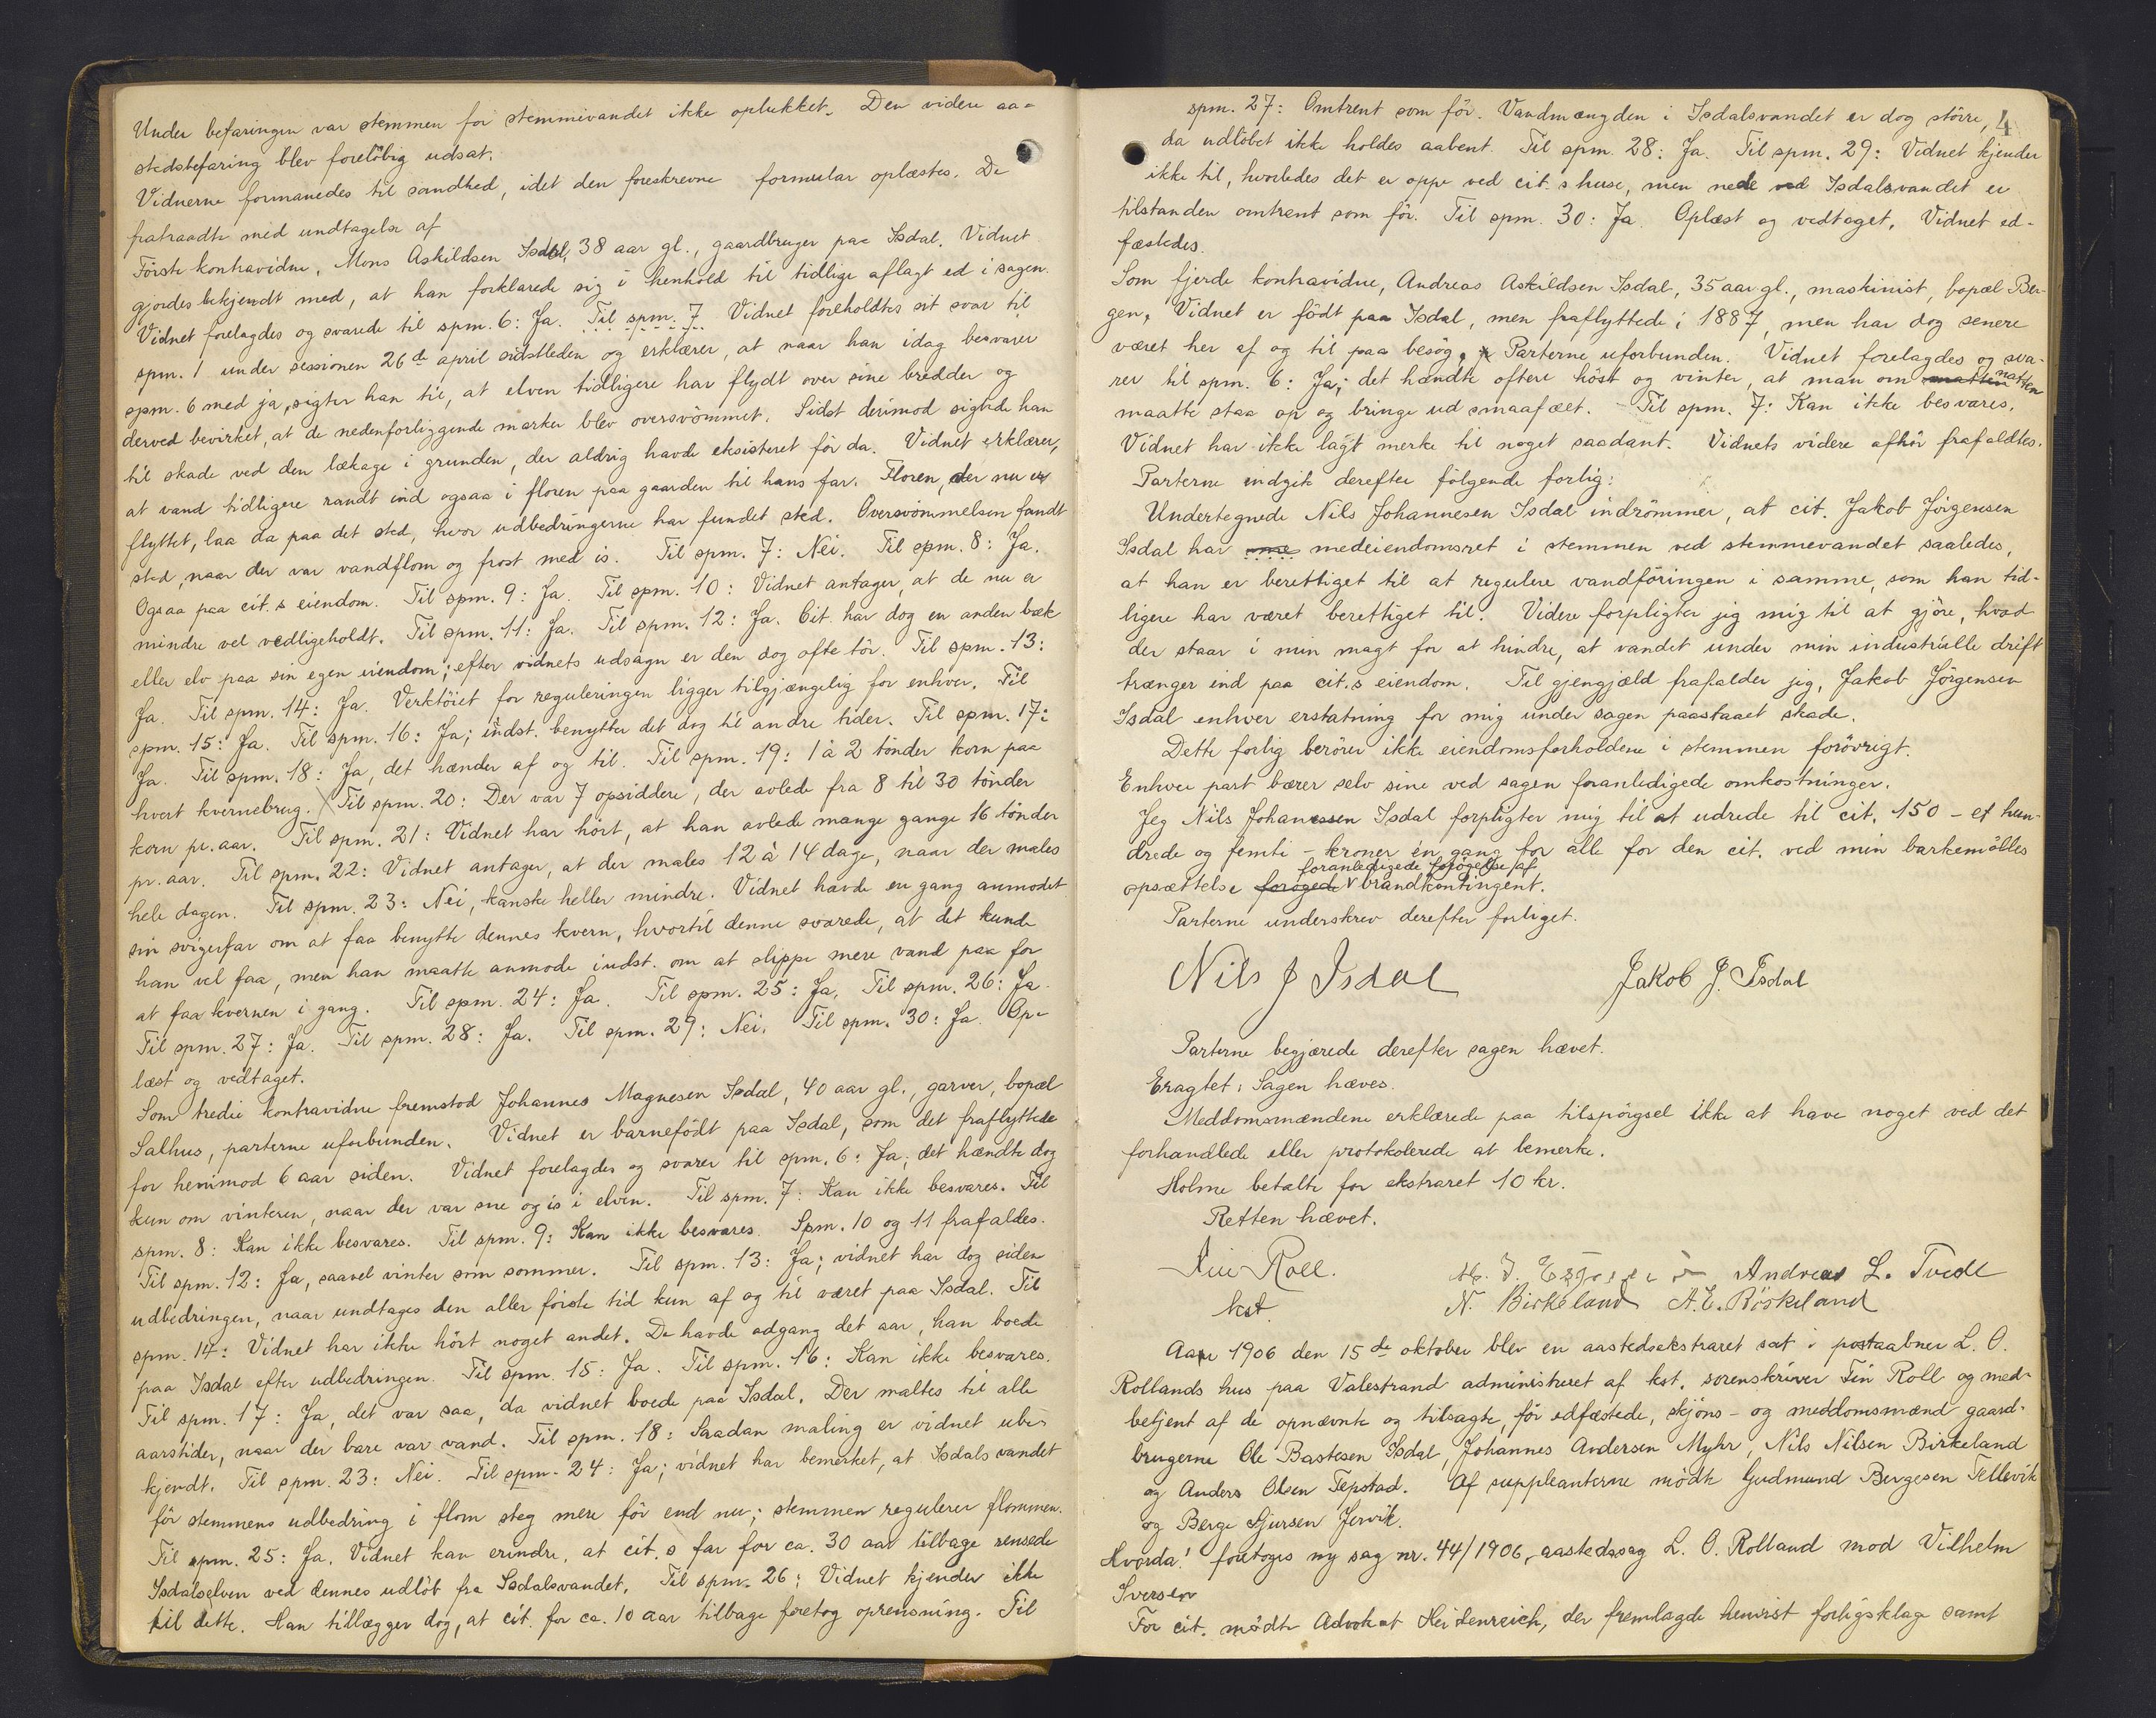 Under befaringen var stemmen for stemmevandet ikke oplukket. Den videre aa-
stedsbefaring blev foreløbig udsat.
Vidnerne formanedes til sandhed, idet den foreskrevne formular oplæstes. De
fratraadte med undtagelse af
Første kontravidne, Mons Askildsen Isdal, 38 aar gl., gaardbruger paa Isdal. Vidnet
gjordes bekjendt med, at han forklarede sig i henhold til tidligere aflagt ed i sagen.
Vidnet forelagdes og svarede til spm. 6: Ja. Til spm. 7 Vidnet foreholdtes sit svar til
spm. 1 under sessionen 26de april sidstleden og erklærer, at naar han idag besvarer
spm. 6 med ja, sigter han til, at elven tidligere har flydt over sine bredder og
derved bevirket, at de nedenforliggende marker blev oversvømmet. Sidst derimod sigtede han
til skade ved den lækage i grunden, der aldrig havde eksisteret før da. Vidnet erklærer,
at vand tidligere randt ind ogsaa i floren paa gaarden til hans far. Floren, der nu er
flyttet, laa da paa det sted, hvor udbedringerne har fundet sted. Oversvømmelsen fandt
sted, naar der var vandflom og frost med is. Til spm. 7: Nei. Til spm. 8: Ja.
Ogsaa paa cit.s eiendom. Til spm. 9: Ja. Til spm. 10: Vidnet antager, at de nu er
mindre vel vedligeholdt. Til spm. 11: Ja. Til spm. 12: Ja. Cit. har dog en anden bæk
eller elv paa sin egen eiendom; efter vidnets udsagn er den dog ofte tør. Til spm. 13:
Ja. Til spm. 14: Ja. Verktøiet for reguleringen ligger tilgjængelig for enhver. Til
spm. 15: Ja. Til spm. 16: Ja; indst. benytter det dog til andre tider. Til spm. 17:
Ja. Til spm. 18: Ja, det hænder af og til. Til spm. 19: 1 à 2 tønder korn paa
hvert kvernebrug. Til spm. 20: Der var 7 opsiddere, der avlede fra 8 til 30 tønder
korn pr. aar. Til spm. 21: Vidnet har hørt, at han avlede mange gange 16 tønder
pr. aar. Til spm. 22: Vidnet antager, at der males 12 à 14 dage, naar der males
hele dagen. Til spm. 23: Nei, kanske heller mindre. Vidnet havde en gang anmodet
sin svigerfar om at faa benytte dennes kvern, hvortil denne svarede, at det kunde
han vel faa, men han maatte anmode indst. om at slippe mere vand paa for
at faa kvernen i gang. Til spm. 24: Ja. Til spm. 25: Ja. Til spm. 26: Ja.
Til spm. 27: Ja. Til spm. 28: Ja. Til spm. 29: Nei. Til spm. 30: Ja. Op-
læst og vedtaget.
Som tredie kontravidne fremstod Johannes Magnesen Isdal, 40 aar gl., garver, bopæl
Salhus, parterne uforbunden. Vidnet er barnefødt paa Isdal, som det fraflyttede
for henimod 6 aar siden. Vidnet forelagdes og svarer til spm. 6: Ja; det hændte dog
kun om vinteren, naar der var sne og is i elven. Til spm. 7: Kan ikke besvares. Til
spm. 8: Kan ikke besvares. Til spm. 9: Kan ikke besvares. Spm. 10 og 11 frafaldes.
Til spm. 12: Ja, saavel vinter som sommer. Til spm. 13: Ja; vidnet har dog siden
udbedringen, naar undtages den aller første tid kun af og til været paa Isdal. Til
spm. 14: Vidnet har ikke hørt noget andet. De havde adgang det aar, han boede
paa Isdal efter udbedringen. Til spm. 15: Ja. Til spm. 16: Kan ikke besvares.
Til spm. 17: Ja, det var saa, da vidnet boede paa Isdal. Der maltes til alle
aarstider, naar der bare var vand. Til spm. 18: Saadan maling er vidnet ube-
kjendt. Til spm. 23: Nei. Til spm. 24: Ja; vidnet har bemerket, at Isdalsvandet
før stemmens udbedring i flom steg mere før end nu; stemmen regulerer flommen.
Til spm. 25: Ja. Vidnet kan erindre, at cit.s far for ca. 30 aar tilbage rensede
Isdalselven ved dennes udløb fra Isdalsvandet. Til spm. 26: Vidnet kjender ikke
til dette. Han tillægger dog, at cit. for ca. 10 aar tilbage foretog oprensning. Til
4
spm. 27: Omtrent som før. Vandmængden i Isdalsvandet er dog større,
da udløbet ikke holdes aabent. Til spm. 28: Ja. Til spm. 29: Vidnet kjender
ikke til, hvorledes det er oppe ved cit.s huse, men nede ved Isdalsvandet er
tilstanden omtrent som før. Til spm. 30: Ja. Oplæst og vedtaget. Vidnet ed-
fæstedes.
Som fjerde kontravidne, Andreas Askildsen Isdal, 35 aar gl., maskinist, bopæl Ber-
gen. Vidnet er født paa Isdal, men fraflyttede i 1887, men har dog senere
været her af og til paa besøg. Parterne uforbunden. Vidnet forelagdes og sva-
rer til spm. 6: Ja; det hændte oftere høst og vinter, at man om natten
maatte staa op og bringe ud smaafæet. Til spm. 7: Kan ikke besvares.
Vidnet har ikke lagt merke til noget saadant. Vidnets videre afhør frafaldtes.
Parterne indgik derefter følgende forlig:
Undertegnede Nils Johannesen Isdal indrømmer, at cit. Jakob Jørgensen
Isdal har medeiendomsret i stemmen ved stemmevandet saaledes,
at han er berettiget til at regulere vandføringen i samme, som han tid-
ligere har været berettiget til. Videre forpligter jeg mig til at gjøre, hvad
der staar i min magt for at hindre, at vandet under min industrielle drift
trænger ind paa cit.s eiendom. Til gjengjæld frafalder jeg, Jakob Jørgensen
Isdal enhver erstatning for mig under sagen paastaaet skade.
Dette forlig berører ikke eiendomsforholdene i stemmen forøvrigt.
Enhver part bærer selv sine ved sagen foranledigede omkostninger.
Jeg Nils Johanessen Isdal forpligter mig til at udrede til cit. 150 – et hun-
drede og femti – kroner én gang for alle for den cit. ved min barkemølles
foranledigede forøgelse af
opsættelse forøgede brandkontingent.
Parterne underskrev derefter forliget.
Nils J Isdal Jakob J. Isdal
Parterne begjærede derefter sagen hævet.
Eragtet: Sagen hæves.
Meddomsmændene erklærede paa tilspørgsel ikke at have noget ved det
forhandlede eller protokolerede at bemerke.
Holme betalte for ekstraret 10 kr.
Retten hævet.
Fin Roll. Andreas L. Tvedt
kst. N. Birkeland A. E. Röskeland
Aar 1906 den 15de oktober blev en aastedsekstraret sat i postaabner L. O.
Rollands hus paa Valestrand administreret af kst. sorenskriver Fin Roll og med-
betjent af de opnævnte og tilsagte, før edfæstede, skjøns- og meddomsmænd gaard-
brugerne Ole Bastesen Isdal, Johannes Andersen Myhr, Nils Nilsen Birkeland
og Anders Olsen Tepstad. Af suppleanterne mødte Gudmund Bergesen Tellevik
og Berge Sjursen Jervik.
Hvorda! foretoges ny sag nr. 44/1906, aastedssag L. O. Rolland mod Vilhelm
Iversen
For cit. mødte Advokat Heidenreich, der fremlagde henvist forligsklage samt